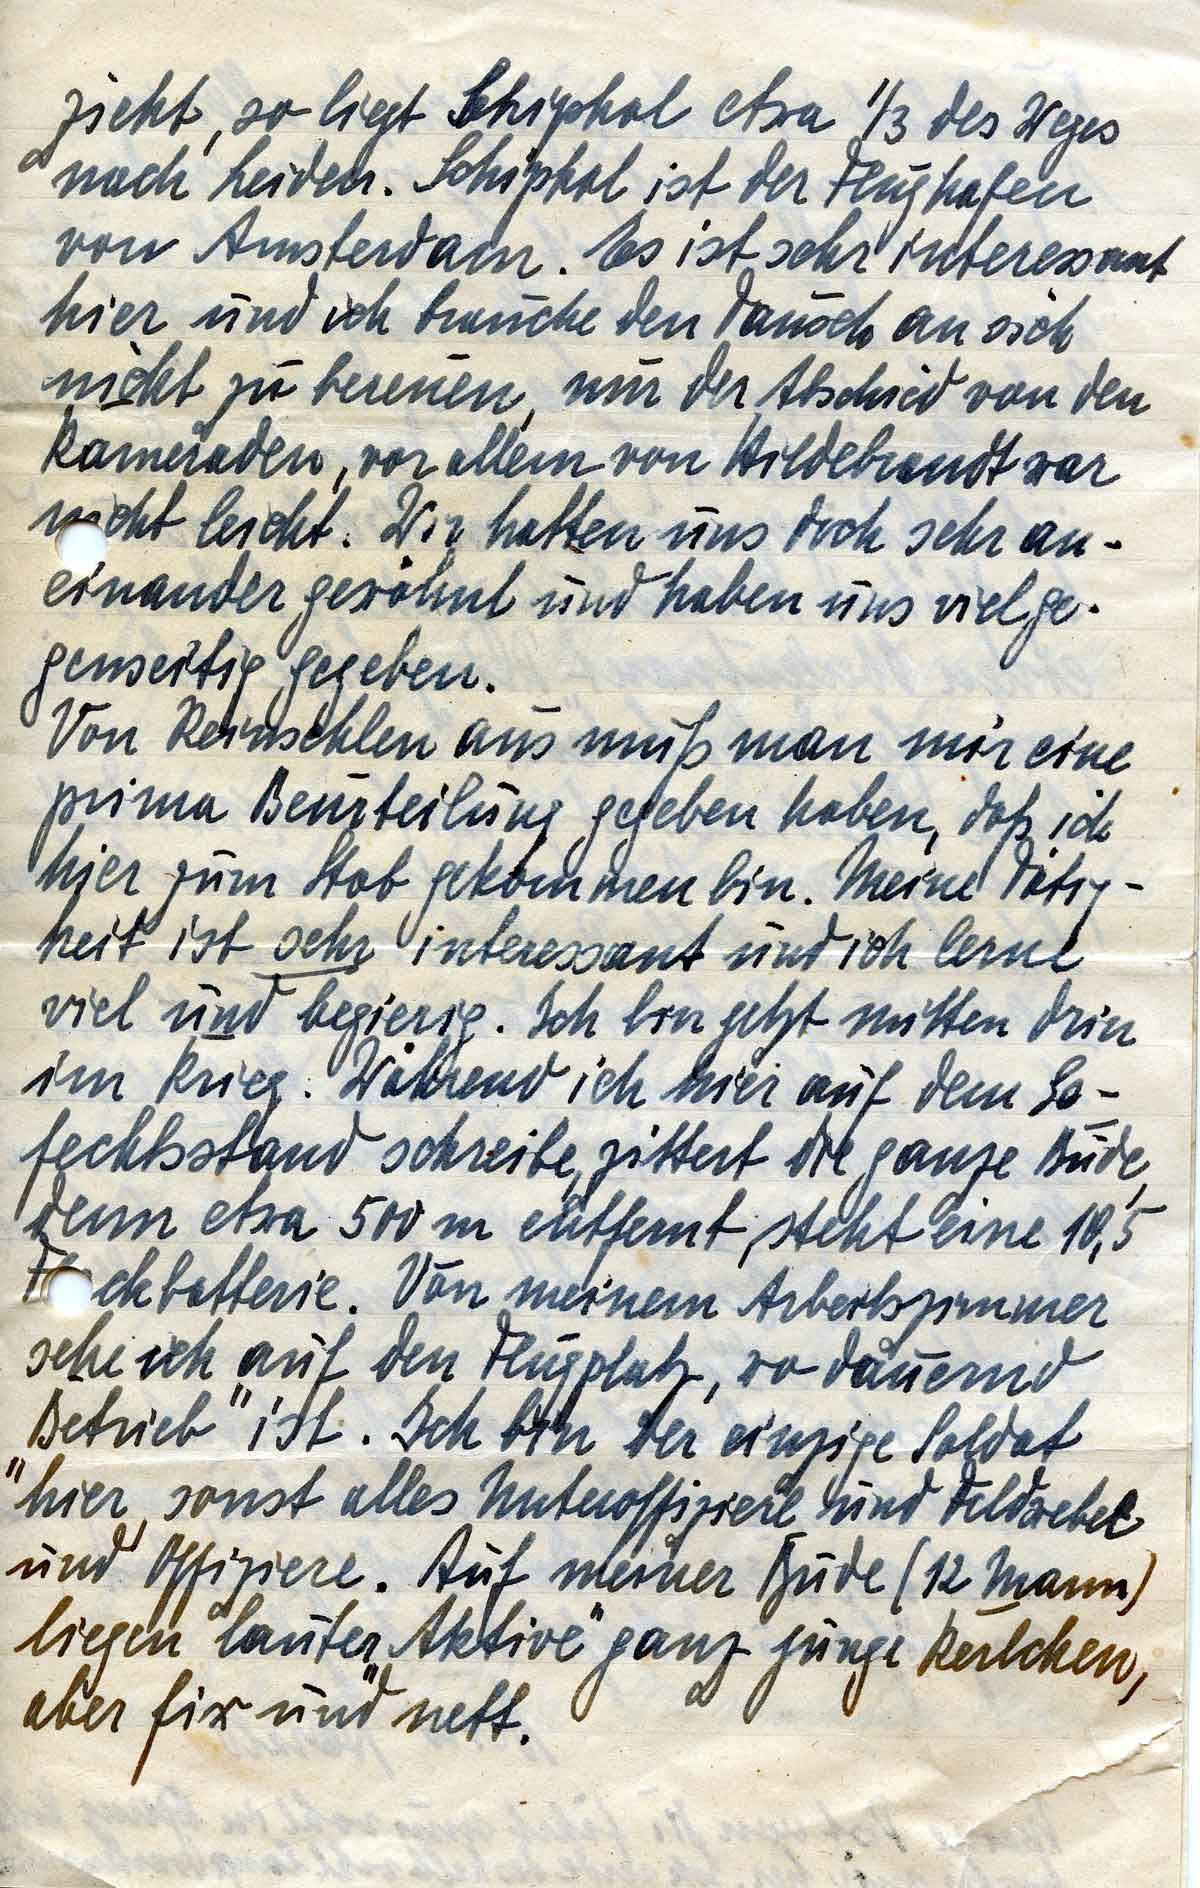 zieht, so liegt Schiphol etwa 1/3 des Weges
nach Leiden. Schiphol ist der Flughafen
von Amsterdam. Es ist sehr interessant
hier und ich brauche den Tausch an sich
nicht zu bereuen, nur der Abschied von den
Kameraden, vor allem von Hildebrandt war
nicht leicht. Wir hatten uns doch sehr an-
einander gewöhnt und haben uns viel ge-
genseitig gegeben.
Von Reinsehlen aus muß man mir eine
prima Beurteilung gegeben haben, daß ich
hier zum Stab gekommen bin. Meine Tätig-
keit ist sehr interessant und ich lerne
viel und begierig. Ich bin jetzt mitten drin
im Krieg. Während ich hier auf dem Ge-
fechtsstand schreibe, zittert die ganze Bude,
denn etwa 500 m entfernt steht eine 10,5
Flackbatterie. Von meinem Arbeitszimmer
sehe ich auf den Flugplatz, wo dauernd
"Betrieb" ist. Ich bin der einzige Soldat
hier, sonst alles Unteroffiziere und Feldwebel
und Offiziere. Auf meiner Bude (12 Mann)
liegen lauter "Aktive" ganz junge Kerlchen,
aber fix und nett.